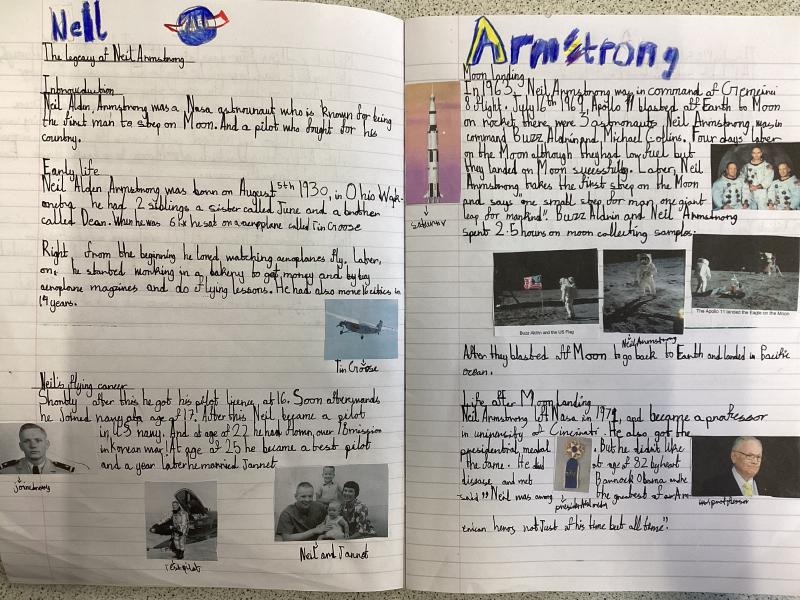 Neil
The legacy of Neil Armstrong
Neil Alden, Armstrong was a Nasa astronaut who is known for being
the first man to step on Moon. And a pilot who fought for his
country.
Early life
Neil Alden Armstrong was born on August 5th 1930, in Ohio
he had 2 siblings a sister called June and a brother
called Dean. When he was 6 he sat on aeroplane called Tin Goose
Right from the beginning he loved watching aeroplanes fly. Later,
on, he started working in a bakery to get money and by
aeroplane magzines and do flying lessons. He had also move 16 cities in
14 years.
Tin Goose
Neil's flying career
Shortly after this he got his pilot licence, at 16. Soon afterwards
he joined navy at age of 17. After this Neil became a pilot
in U.S navy. And at age of 22 he had flown, over 78 mission
in Korean war. At age of 25 he became a test pilot
and a year later he married Jannet
joined navy
Test pilot
Neil and Jannet
Armstrong
Moon landing
In 1965, Neil Armstrong was in command of Gemeini
8 flight. July 16th 1969, Apollo 11 blasted off Earth to Moon
on rocket there were 3 astronauts Neil Armstrong, was in
command Buzz Aldrin and Michael Collins. Four days later
on the Moon although they had low fuel but
they landed on Moon sucessfully. Later, Neil
Armstrong, takes the first step on the Moon
and says one small step for man, one giant
leap for mankind". Buzz Aldrin and Neil Armstrong
spent 2.5 hours on moon collecting samples.
Buzz Aldrin and the US Flag
Neil Armstrong
The Apollo 11 landed the Eagle on the Moon
After they blasted off Moon to go back to Earth and landed in Pacific
ocean.
Life after Moon landing
Neil Armstrong left Nasa in 1971, and became a professor
in university of Cincinati. He also got the
presidential medal. But he didn't like
the fame. He died at age of 82 by heart
disease and met Barrock Obama
said "Neil was among the greatest of
erican heros not Just of his time but all time".